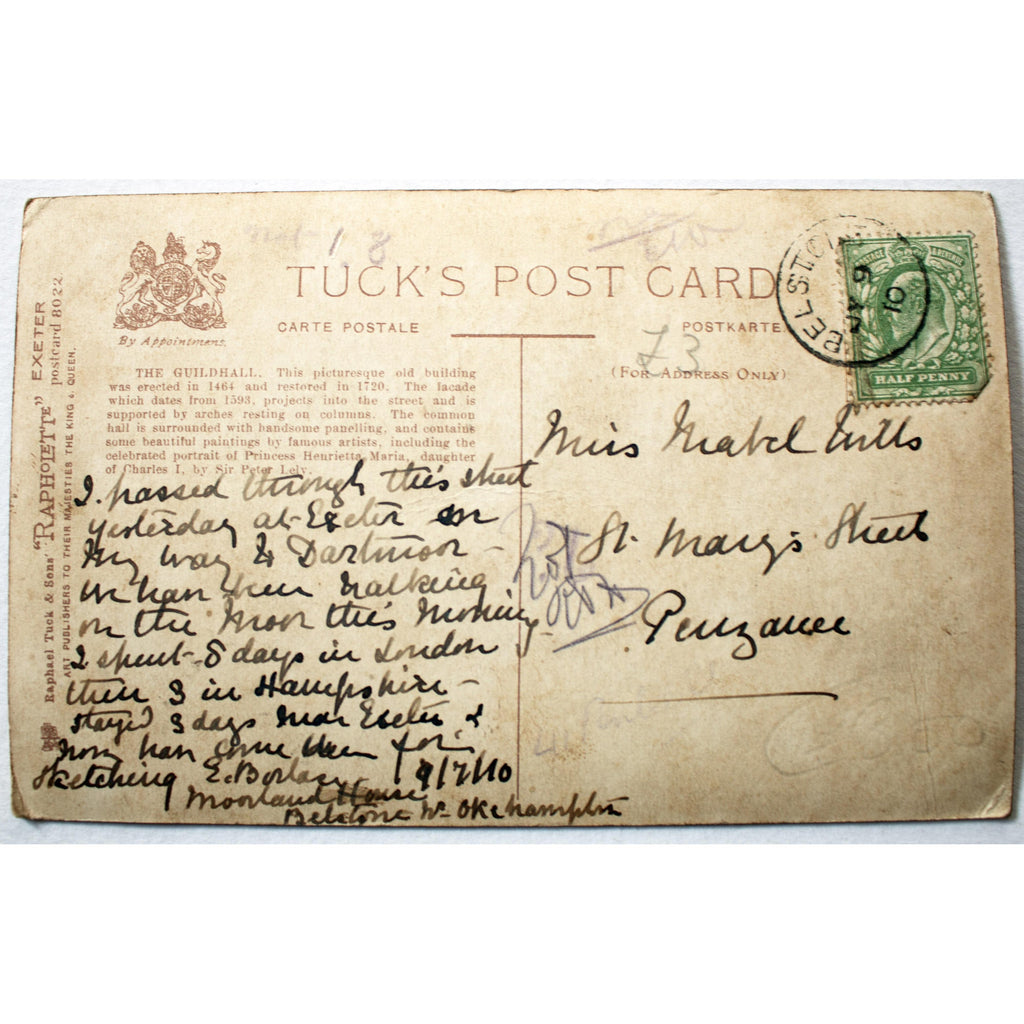 TUCK'S POST CARD
CARTE POSTALE
POSTKARTE
(FOR ADDRESS ONLY)
By Appointment.
Raphael Tuck & Sons' "RAPHOLETTE" EXETER
postcard 8022
ART PUBLISHERS TO THEIR MAJESTIES THE KING & QUEEN.
THE GUILDHALL. This picturesque old building
was erected in 1464 and restored in 1720. The facade
which dates from 1593, projects into the street and is
supported by arches resting on columns. The common
hall is surrounded with handsome panelling, and contains
some beautiful paintings by famous artists, including the
celebrated portrait of Princess Henrietta Maria, daughter
of Charles I, by Sir Peter Lely.
I passed through this street
yesterday at Exeter on
my way to Dartmoor -
we have been walking
on the Moor this morning -
I spent 8 days in London
then 3 in Hampshire -
stayed 3 days near Exeter &
now have come here for
sketching E. Borlase 9/7/10
Moorland House
Belstone Nr Okehampton
Miss Mabel
St. Mary's Street
Penzance
£3
BELSTONE
9
10
POSTAGE & REVENUE
HALF PENNY